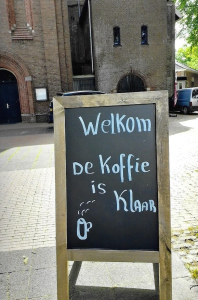 Welkom
De Koffie
is
Klaar